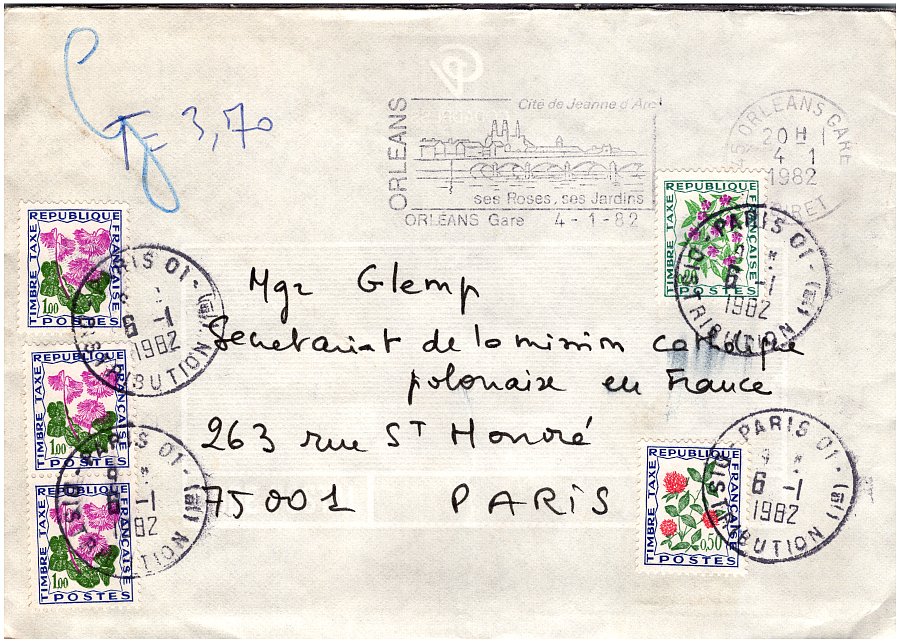 T= 3,70
ORLEANS
Cité de Jeanne d'Arc
ses Roses, ses Jardins
ORLEANS Gare 4-1-82
45 ORLEANS GARE
20H
4 1
1982
LOIRET
REPUBLIQUE FRANÇAISE
TIMBRE TAXE
1,00
POSTES
REPUBLIQUE FRANÇAISE
TIMBRE TAXE
POSTES
PARIS 01
6 -1
1982
DISTRIBUTION (1e)
PARIS 01
6 -1
1982
DISTRIBUTION
Mgr Glemp
Secretariat de la mission catholique
polonaise en France
263 rue ST Honoré
75001 PARIS
REPUBLIQUE FRANÇAISE
TIMBRE TAXE
1,00
POSTES
REPUBLIQUE FRANÇAISE
TIMBRE TAXE
1,00
POSTES
PARIS 01
1982
DISTRIBUTION
REPUBLIQUE FRANÇAISE
TIMBRE TAXE
0,50
POSTES
PARIS 01
6 -1
1982
DISTRIBUTION